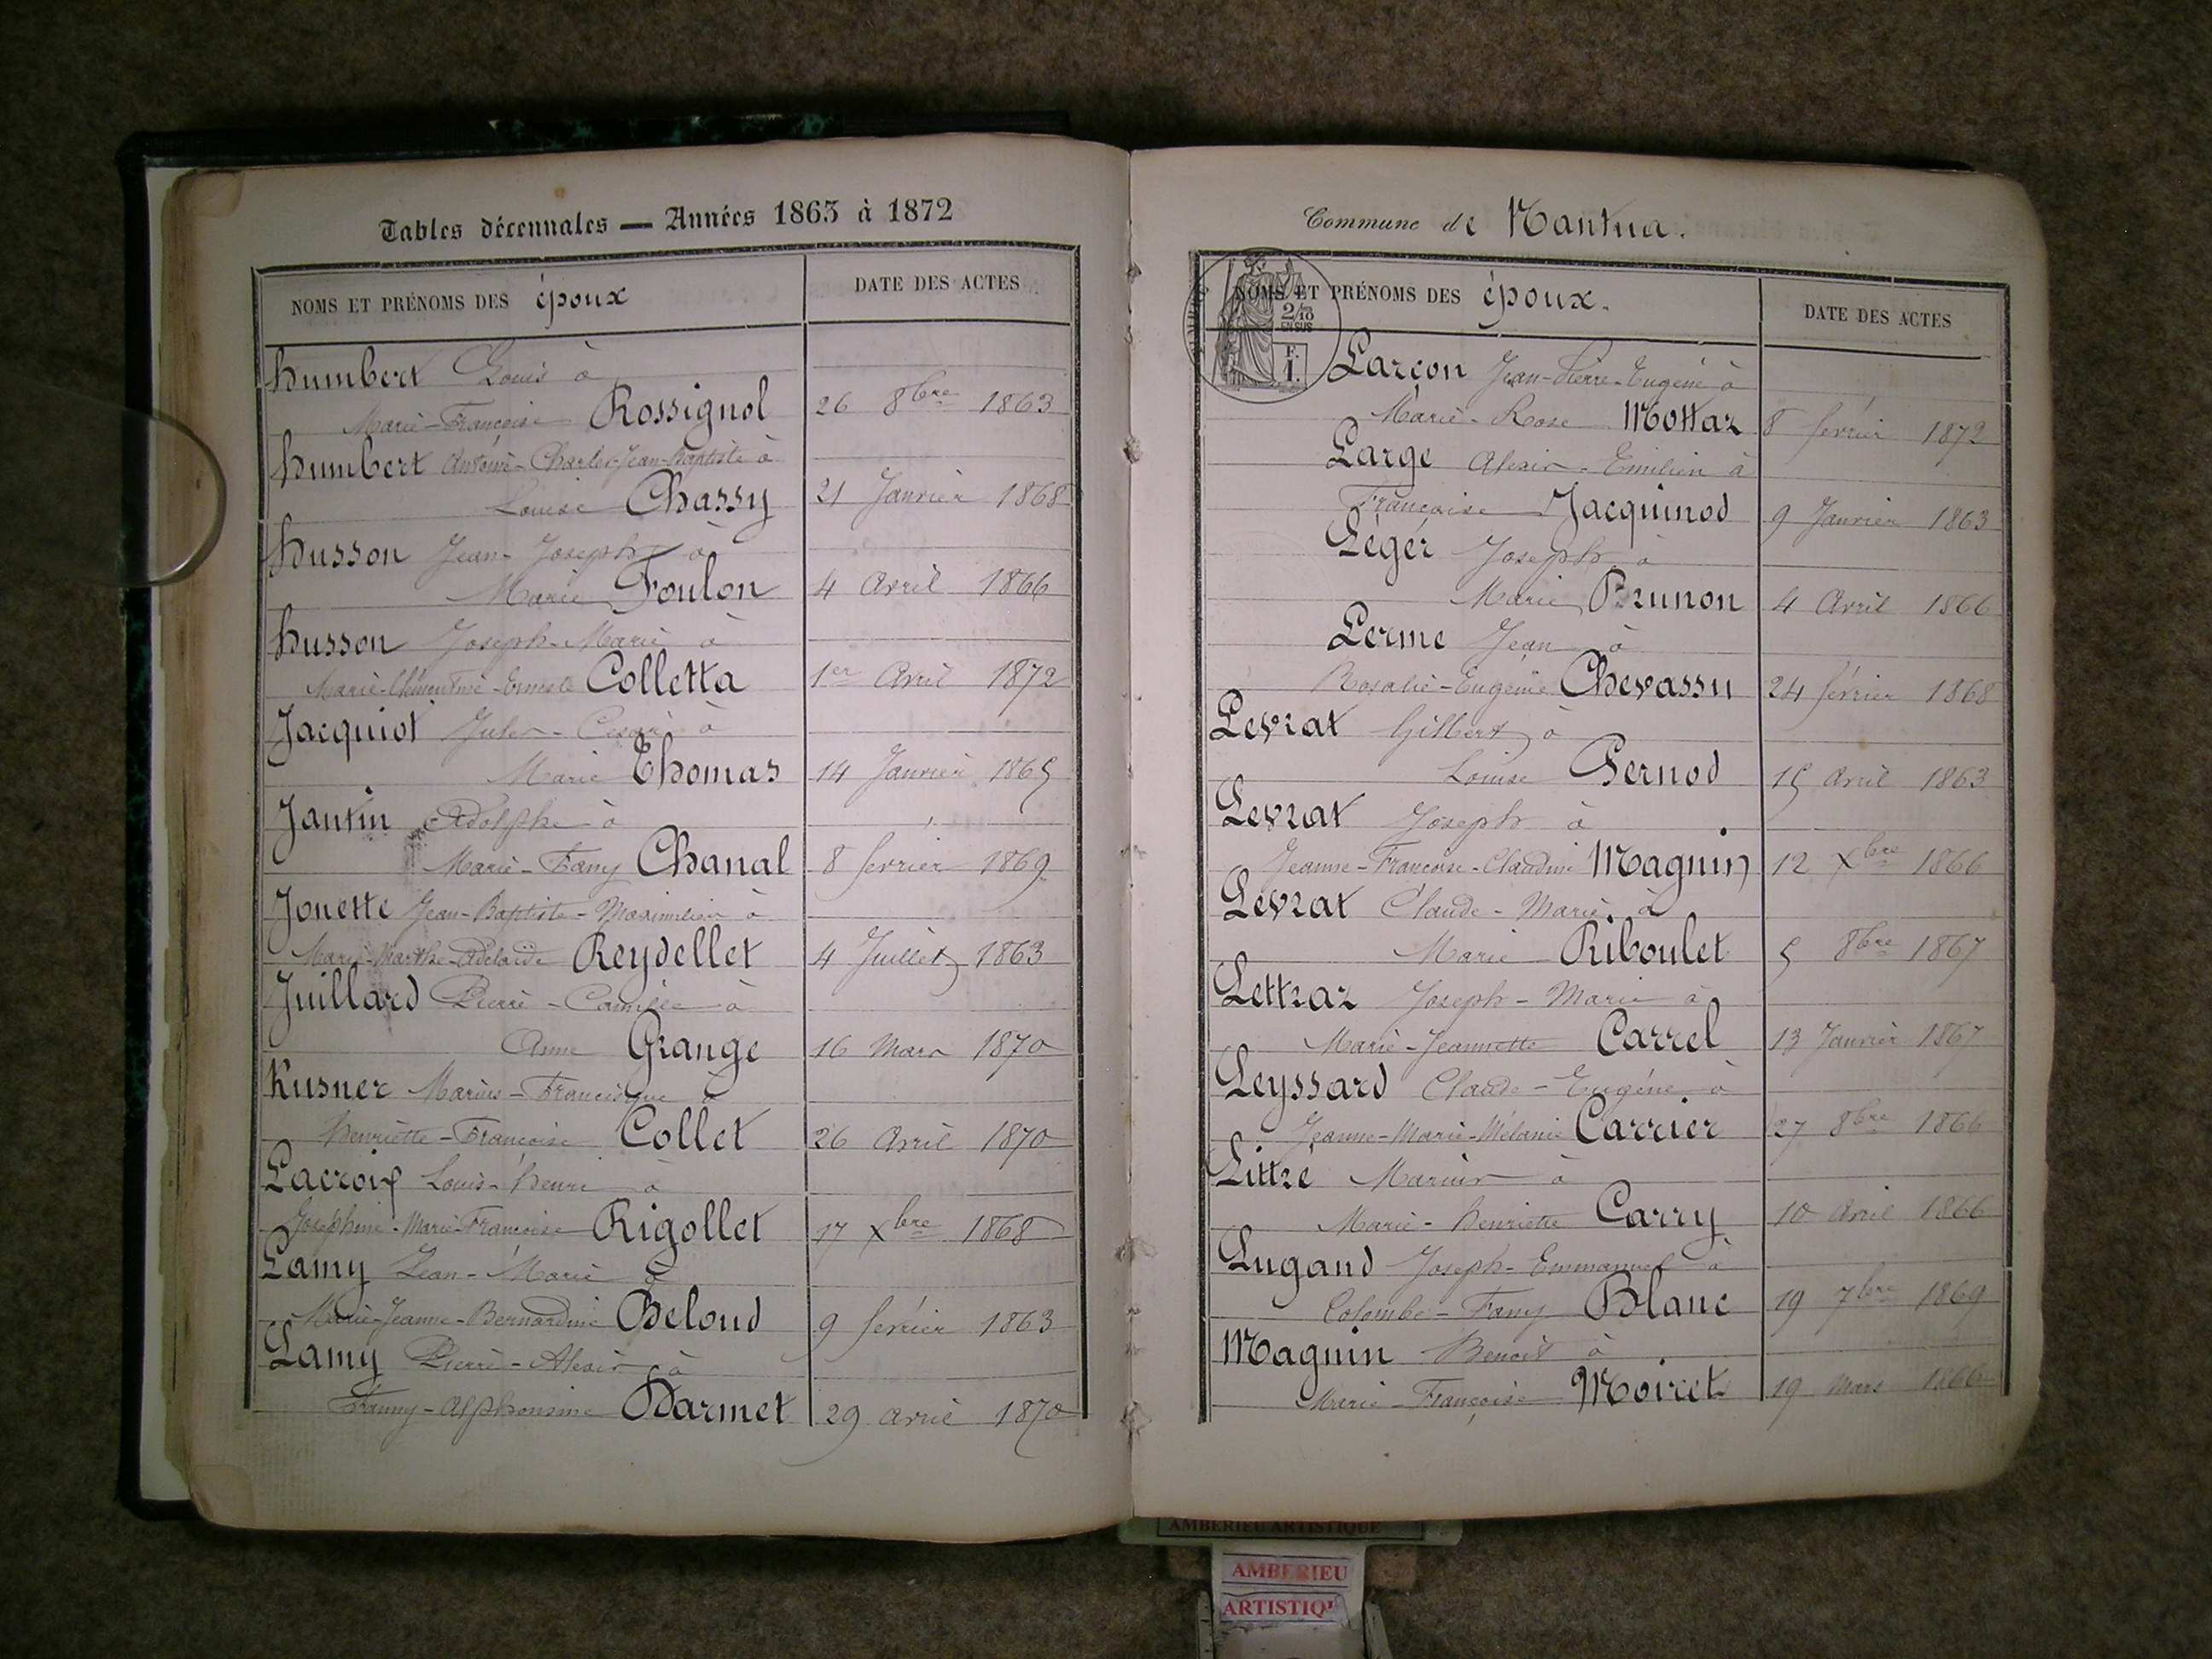 Tables décennales — Années 1863 à 1872
NOMS ET PRÉNOMS DES époux
DATE DES ACTES
Humbert Louis à
Marie-Françoise Rossignol 26 8bre 1863
Humbert Antoine-Charles-Jean-Baptiste à
Louise Chassy 21 Janvier 1868
Husson Jean-Joseph à
Marie Foulon 4 Avril 1866
Husson Joseph-Marie à
Marie-Clémentine-Erneste Colletta 1er Avril 1872
Jacquiot Jules-Cesar à
Marie Thomas 14 Janvier 1865
Jantin Adolphe à
Marie-Fany Chanal 8 février 1869
Jouette Jean-Baptiste-Maximilien à
Marie-Marthe-Adelaïde Reydellet 4 Juillet 1863
Juillard Pierre-Camille à
Anne Grange 16 Mars 1870
Kusner Marius-Francisque à
Henriette-Françoise Collet 26 Avril 1870
Lacroix Louis-Henri à
Josephine-Marie-Françoise Rigollet 17 Xbre 1868
Lamy Jean-Marie à
Marie-Jeanne-Bernardine Beloud 9 février 1863
Lamy Pierre-Alexis à
Fanny-Alphonsine Darmet 29 avril 1870
Commune de Nantua.
NOMS ET PRÉNOMS DES époux.
DATE DES ACTES
2/10
EN SUS
F.
1.
Larçon Jean-Pierre-Eugène à
Marie-Rose Mottaz 8 février 1872
Large Alexis-Emilien à
Françoise Jacquinod 9 Janvier 1863
Léger Joseph à
Marie Brunon 4 Avril 1866
Lerme Jean à
Rosalie-Eugénie Chevassu 24 février 1868
Levrat Gilbert à
Louise Pernod 15 avril 1863
Levrat Joseph à
Jeanne-Françoise-Claudine Magnin 12 Xbre 1866
Levrat Claude-Marie à
Marie Riboulet 5 8bre 1867
Lettraz Joseph-Marie à
Marie-Jeannette Carrel 13 Janvier 1867
Leyssard Claude-Eugène à
Jeanne-Marie-Mélanie Carrier 27 8bre 1866
Littré Marius à
Marie-Henriette Carry 10 Avril 1866
Lugand Joseph-Emmanuel à
Colombe-Fany Blanc 19 7bre 1869
Magnin Benoit à
Marie-Françoise Moiret 19 Mars 1866
AMBERIEU ARTISTIQUE
AMBERIEU
ARTISTIQU